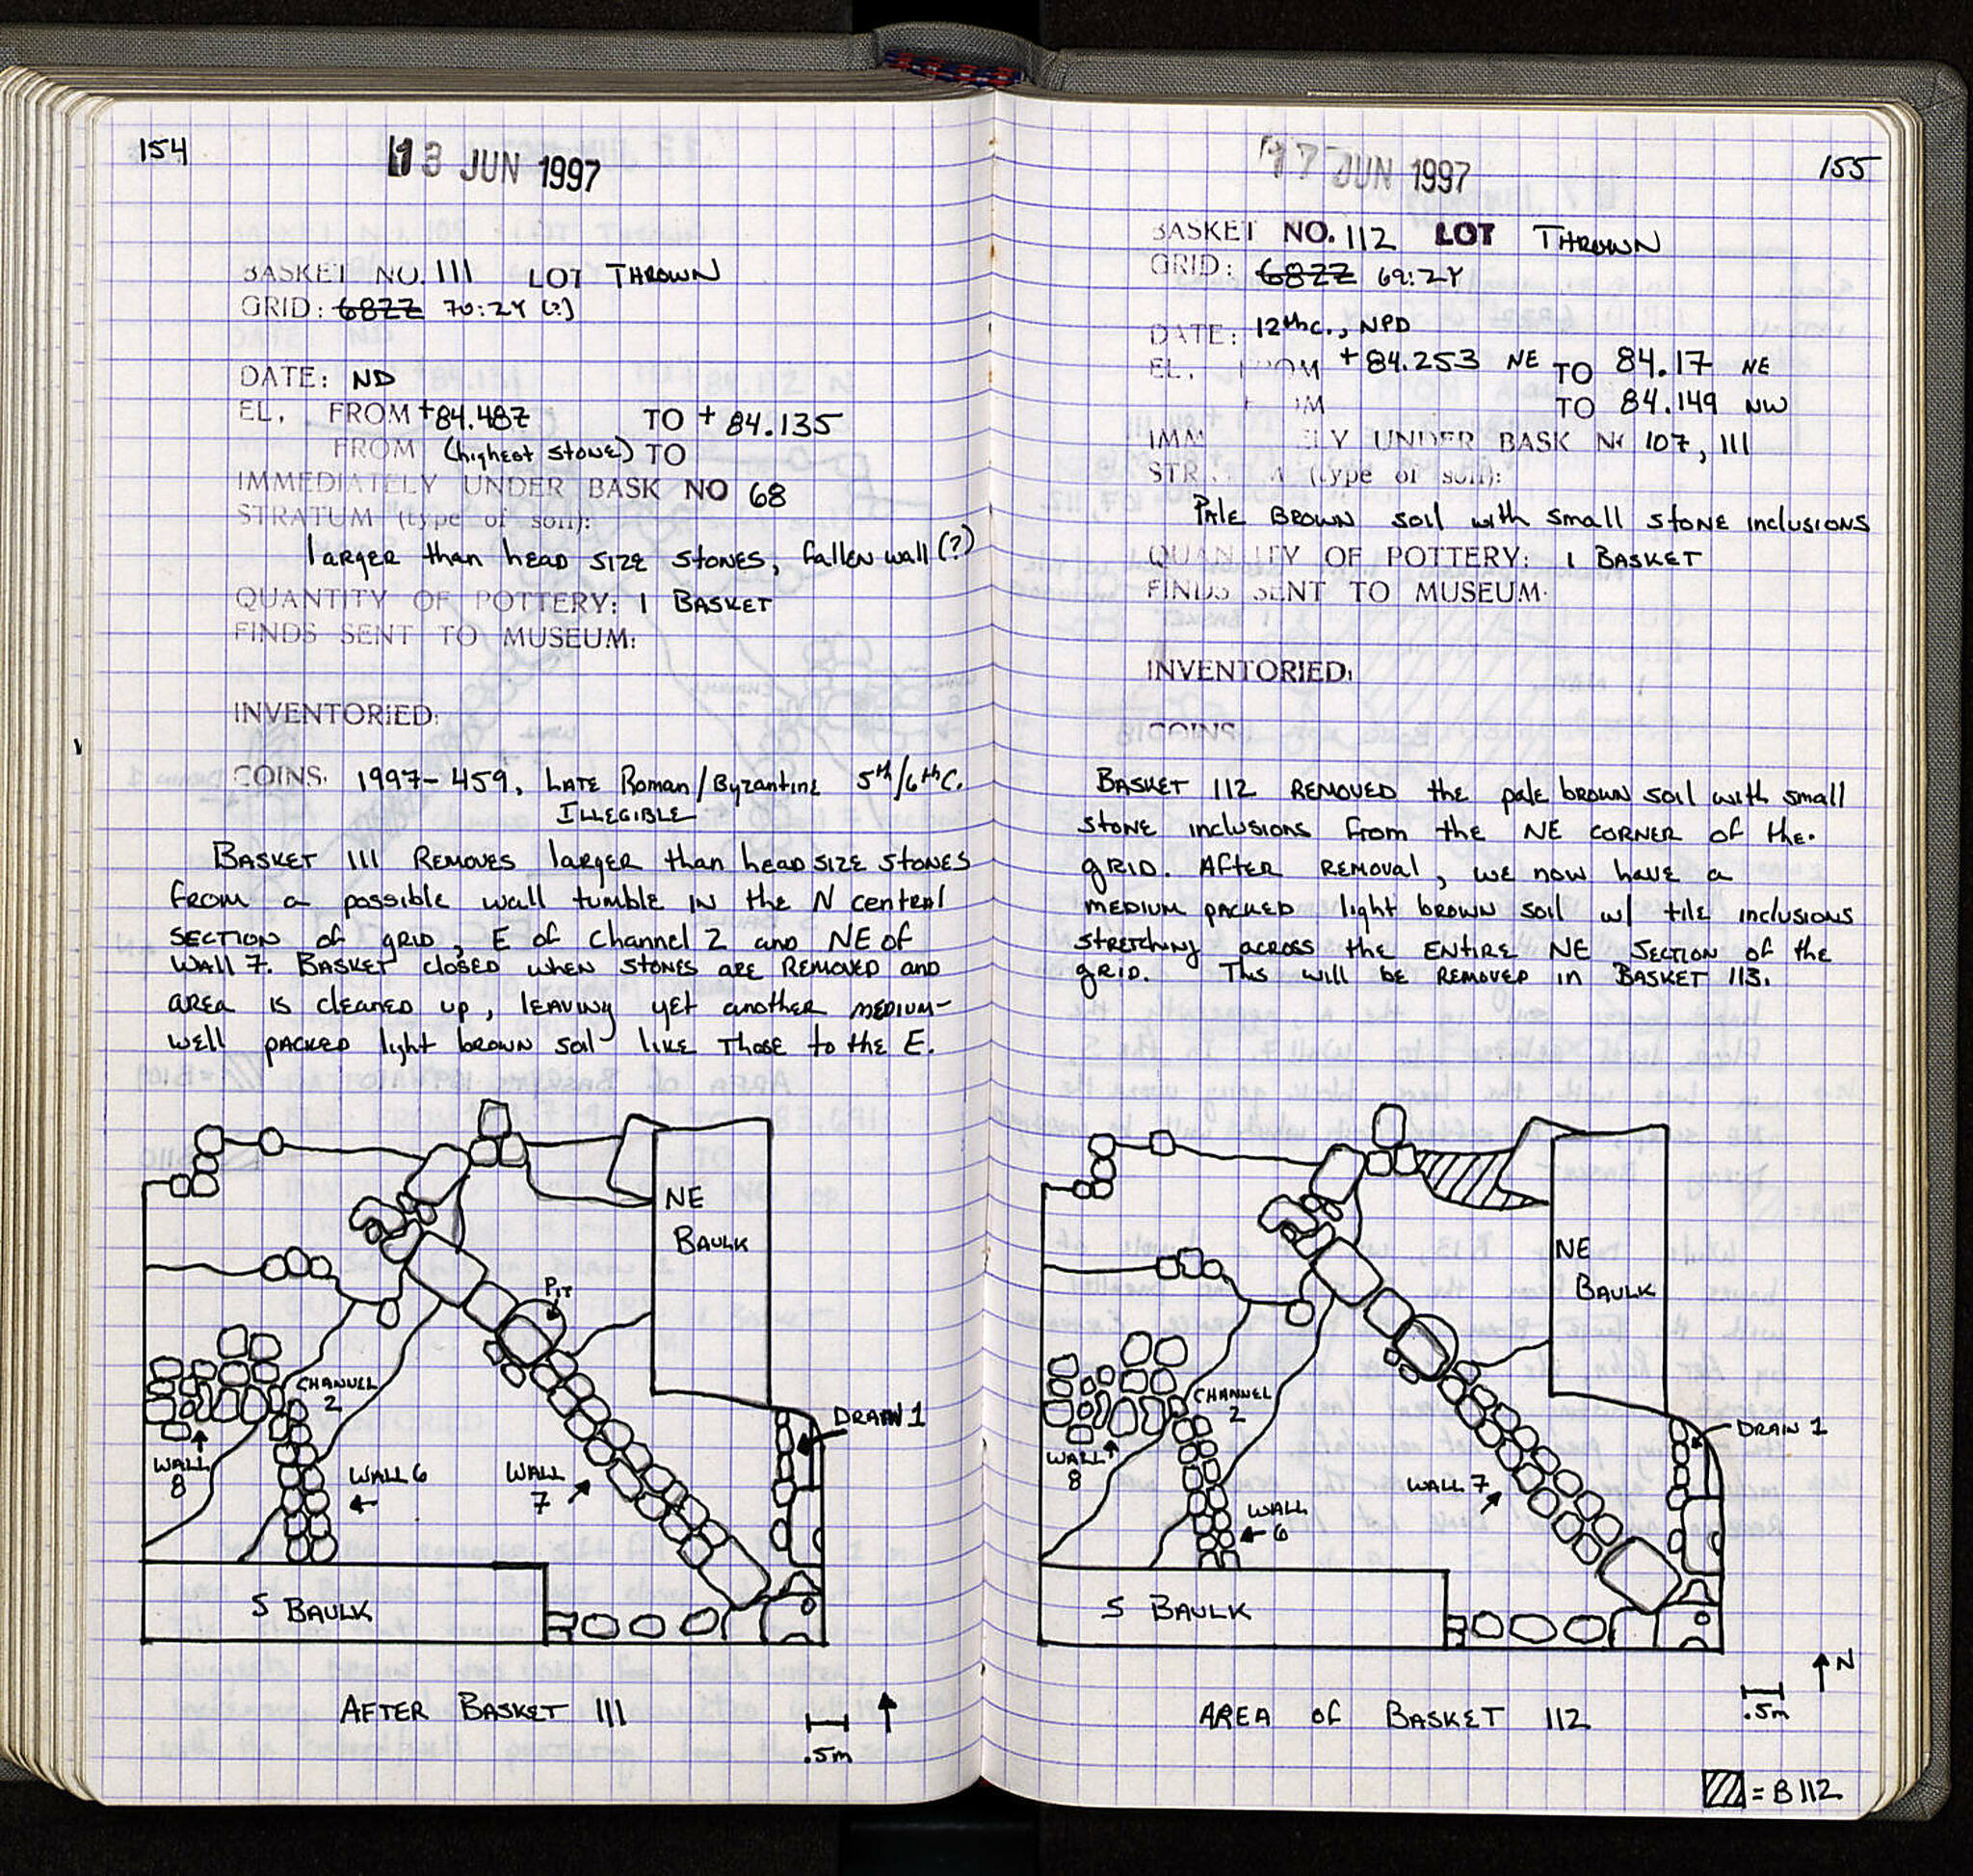 154
13 JUN 1997
BASKET NO. 111 LOT THROWN
GRID: 68ZZ 70:2Y (?)
DATE: ND
EL. FROM +84.487 TO +84.135
FROM (highest stone) TO
IMMEDIATELY UNDER BASK NO 68
STRATUM (type of soil):
larger than head size stones, fallen wall (?)
QUANTITY OF POTTERY: 1 BASKET
FINDS SENT TO MUSEUM:
INVENTORIED:
COINS. 1997-459, LATE Roman/Byzantine 5th/6th C.
ILLEGIBLE
BASKET 111 REMOVES larger than head size stones
from a possible wall tumble in the N central
SECTION of grid, E of Channel 2 and NE of
WALL 7. BASKET closed when stones are REMOVED and
area is cleaned up, leaving yet another medium-
well packed light brown soil like those to the E.
NE
BAULK
PIT
CHANNEL
2
DRAIN 1
WALL
8
WALL 6
WALL
7
S BAULK
AFTER BASKET 111
.5m
17 JUN 1997
155
BASKET NO. 112 LOT THROWN
GRID: 68ZZ 69:2Y
DATE: 12th c., NPD
EL. FROM +84.253 NE TO 84.17 NE
OM TO 84.149 NW
IMM ELY UNDER BASK NO 107, 111
STR A (type of soil):
Pale BROWN soil with small stone inclusions
QUANTITY OF POTTERY: 1 BASKET
FINDS SENT TO MUSEUM.
INVENTORIED:
COINS.
BASKET 112 REMOVED the pale brown soil with small
stone inclusions from the NE CORNER of the.
grid. After removal, we now have a
medium packed light brown soil w/ tile inclusions
stretching across the ENTIRE NE SECTION of the
grid. This will be removed in Basket 113.
NE
BAULK
CHANNEL
2
DRAIN 1
WALL
8
WALL 7
WALL
6
S BAULK
N
AREA of BASKET 112
.5m
= B 112